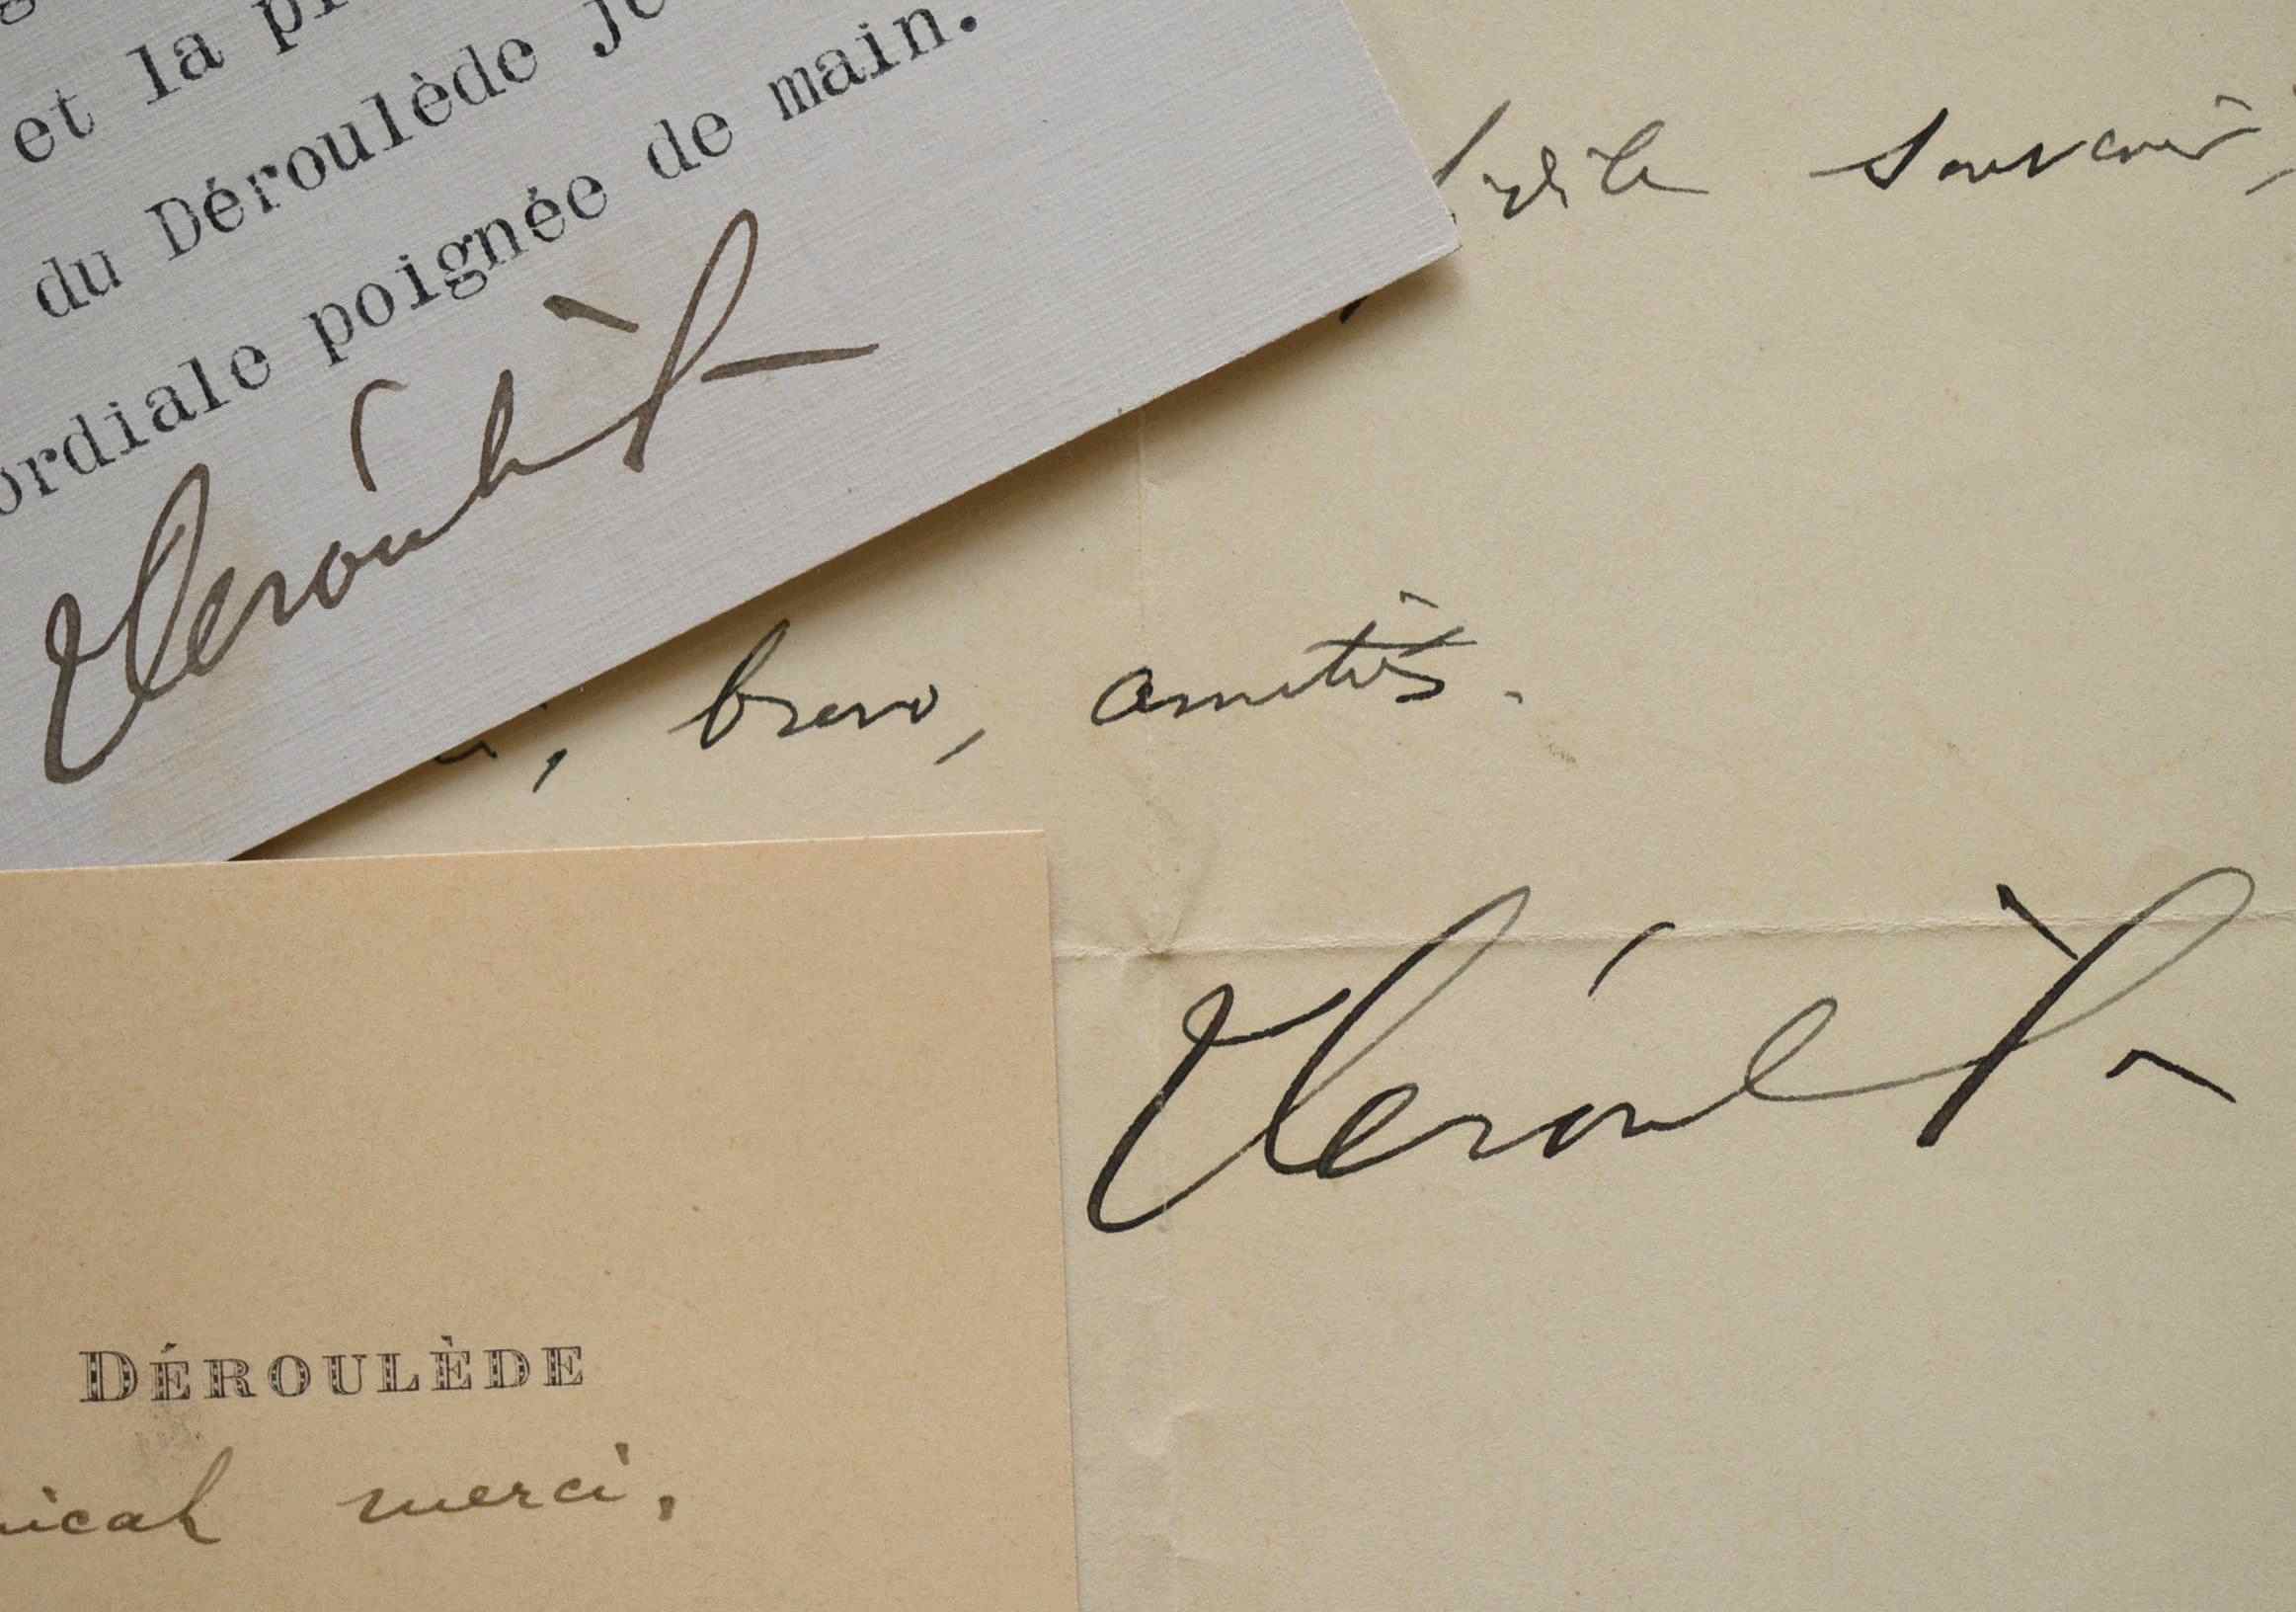 et la
du Déroulède je
ordiale poignée de main.
Déroulède
fidèle souvenir,
, bravo, amitiés.
Déroulède
DÉROULÈDE
amical merci,